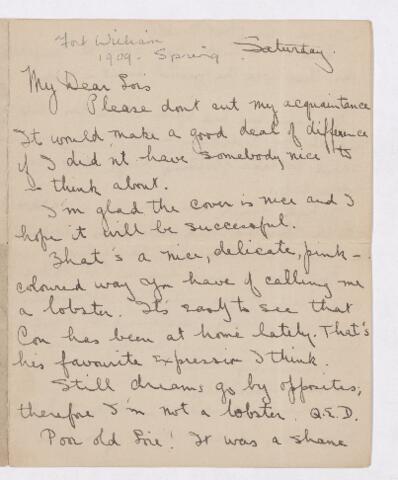 Fort William
1909. Spring
Saturday.
My Dear Lois
Please dont cut my acquaintance
It would make a good deal of difference
if I did n't have somebody nice to
think about.
I'm glad the cover is nice and I
hope it will be successful.
That's a nice, delicate, pink-
coloured way you have of calling me
a lobster. It's easy to see that
Con has been at home lately. That's
his favourite expression I think.
Still dreams go by opposites,
therefore I'm not a lobster. Q.E.D.
Poor old Loie! It was a shame